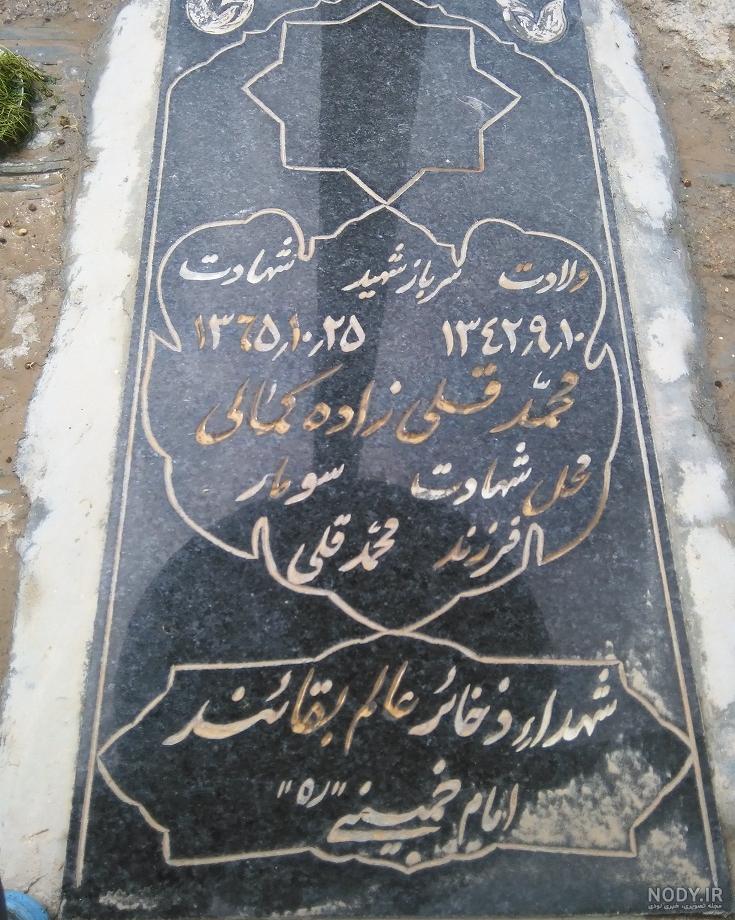 ولادت سرباز شهید شهادت
۱۳۴۲٫۹٫۱۰ ۱۳۶۵٫۱۰٫۲۵
محمّد قلی زاده کمالی
محل شهادت سومار
فرزند محمّد قلی
شهداء ذخائر عالم بقائند
امام خمینی "ره"
NODY.IR
مجله تصویری، خبری نودی